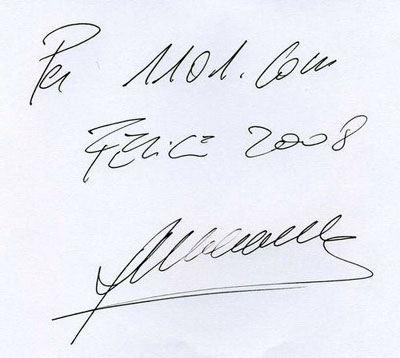 Per 1101.com
FELiCE 2008